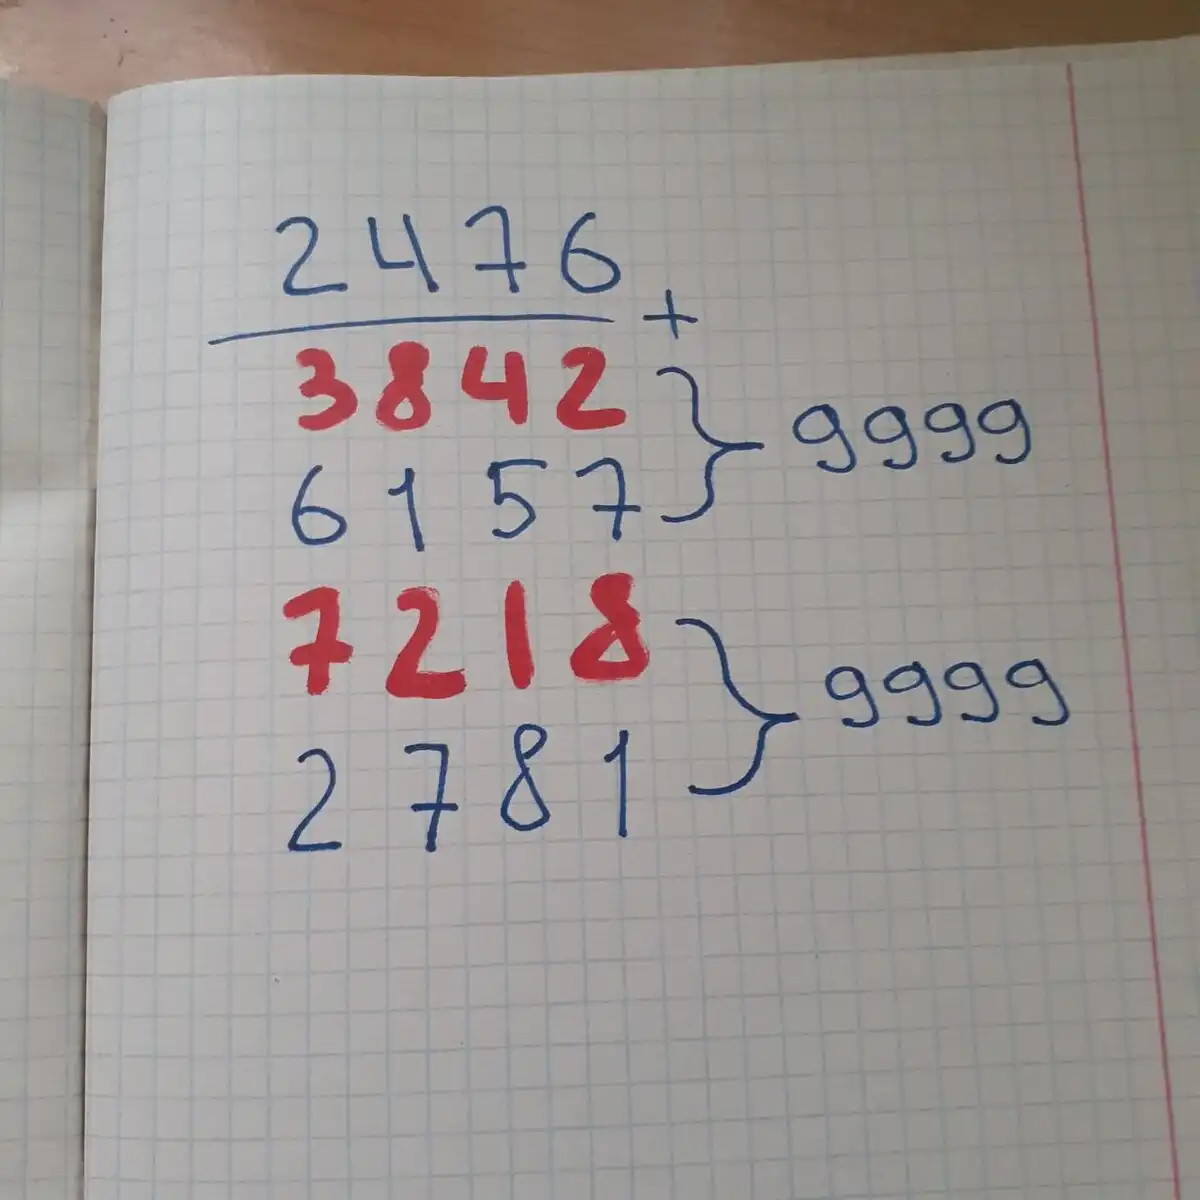 2476
+
3842
6157
} 9999
7218
2781
} 9999